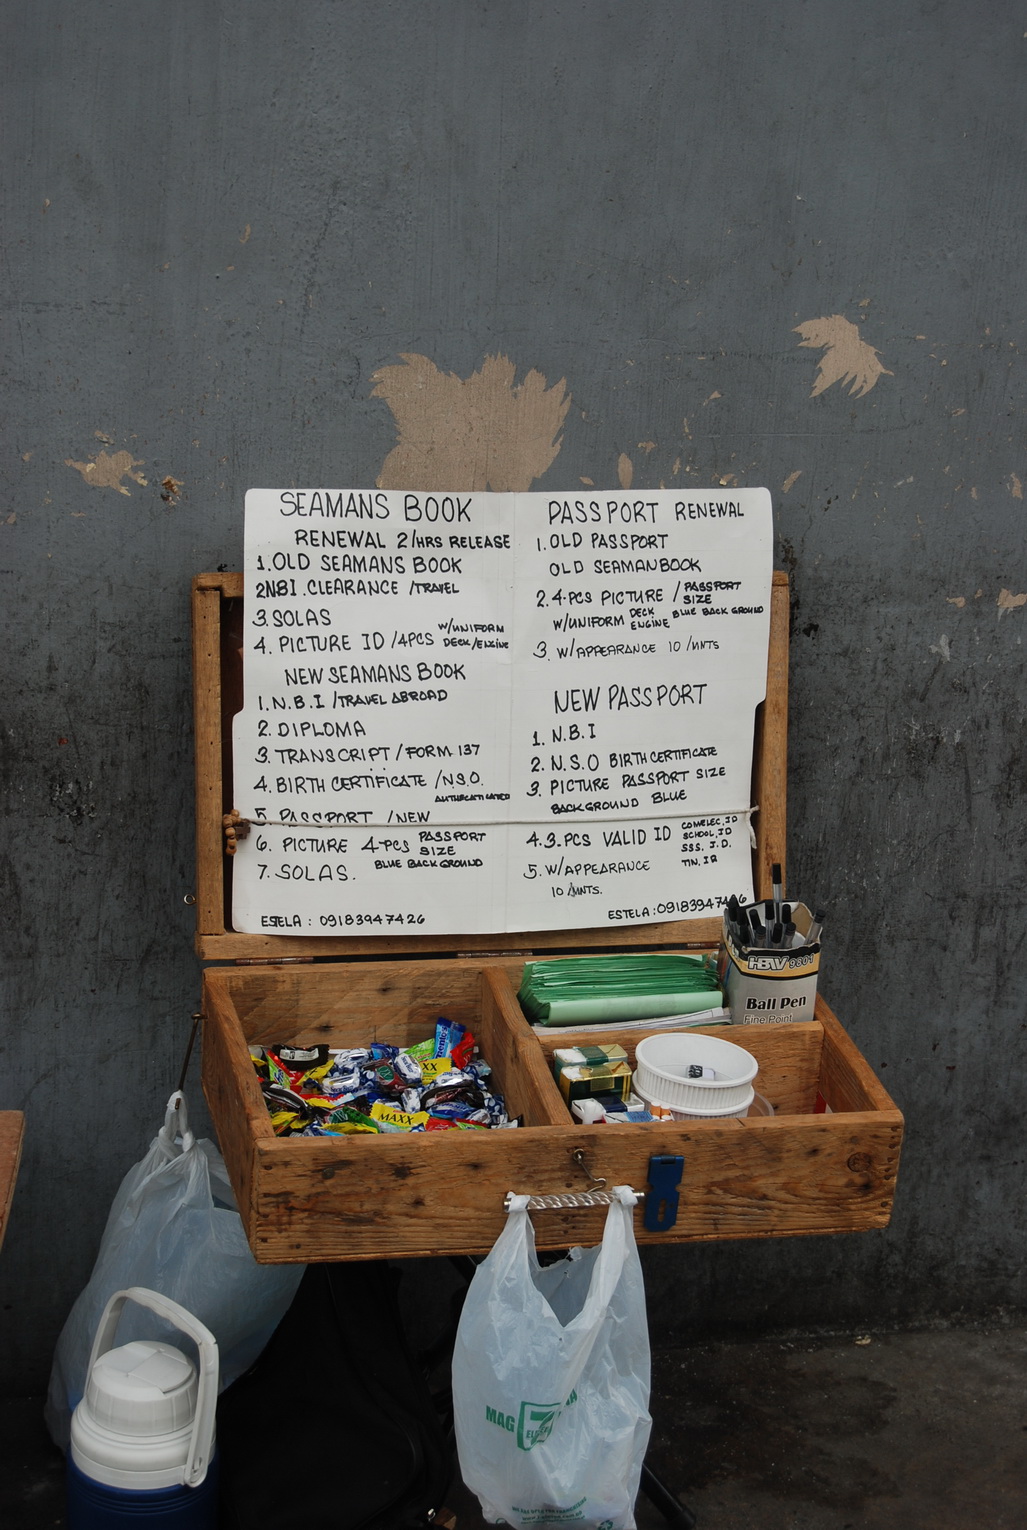 SEAMANS BOOK
RENEWAL 2/HRS RELEASE
1. OLD SEAMANS BOOK
2 NBI. CLEARANCE /TRAVEL
3. SOLAS
4. PICTURE ID /4PCS W/UNIFORM DECK/ENGINE
NEW SEAMANS BOOK
1. N.B.I /TRAVEL ABROAD
2. DIPLOMA
3. TRANSCRIPT / FORM 137
4. BIRTH CERTIFICATE /N.S.O.
5. PASSPORT /NEW
6. PICTURE 4-PCS PASSPORT SIZE
BLUE BACK GROUND
7. SOLAS.
ESTELA : 09183947426
PASSPORT RENEWAL
1. OLD PASSPORT
OLD SEAMANBOOK
2. 4-PCS PICTURE / PASSPORT SIZE
W/UNIFORM DECK ENGINE BLUE BACK GROUND
3. W/APPEARANCE 10 /MNTS
NEW PASSPORT
1. N.B.I
2. N.S.O BIRTH CERTIFICATE
3. PICTURE PASSPORT SIZE
BACKGROUND BLUE
4. 3. PCS VALID ID COMELEC. ID
SCHOOL. ID
SSS. I.D.
TIN. ID
5. W/APPEARANCE
10 MNTS.
ESTELA : 09183947426
HBW
Ball Pen
Fine Point
MAXX
MAXX
MAG
7